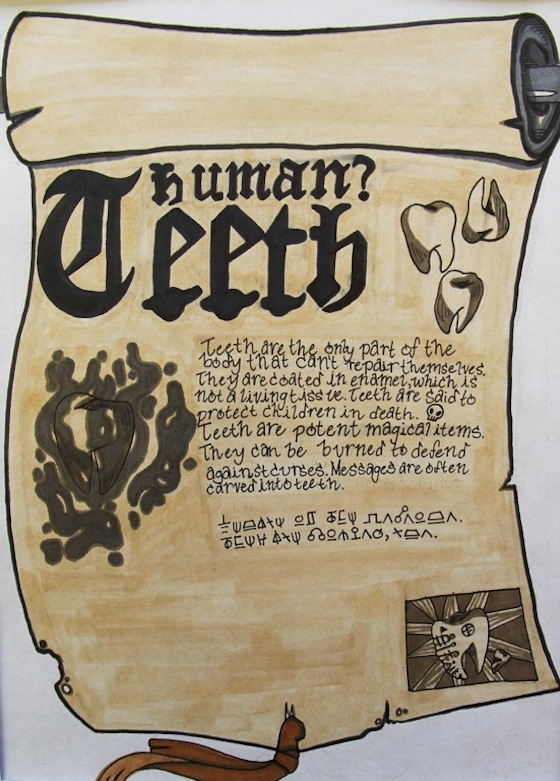 human?
Teeth
Teeth are the only part of the
body that can't repair themselves.
They are coated in enamel, which is
not a living tissue. Teeth are said to
protect children in death.
Teeth are potent magical items.
They can be burned to defend
against curses. Messages are often
carved into teeth.